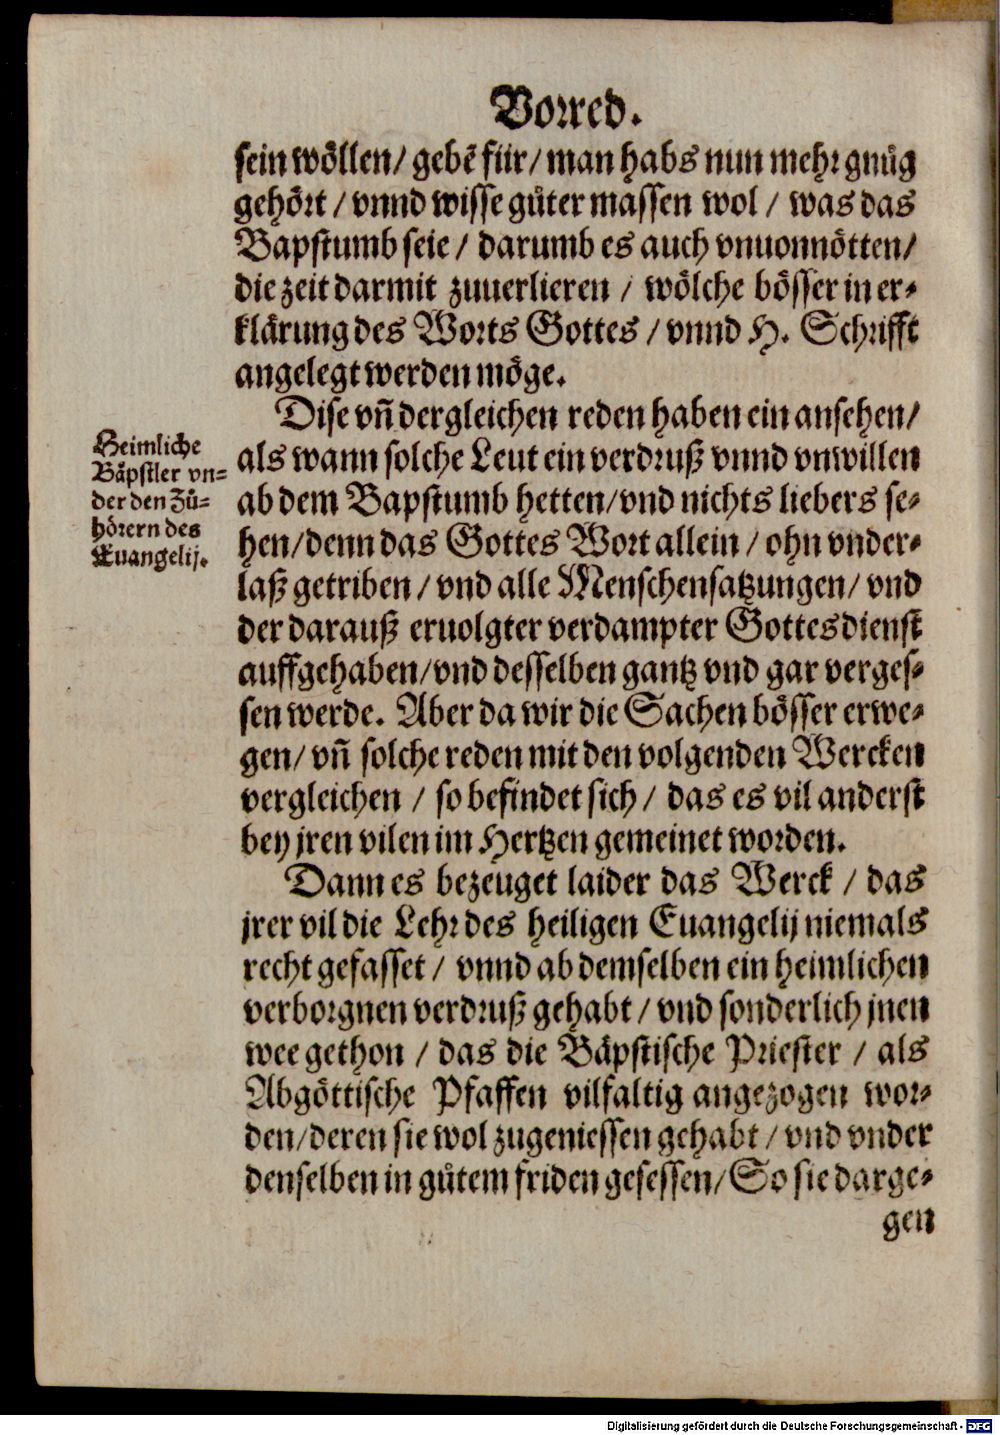 Vorred.
sein wöllen/ gebē für/ man habs nun mehr gnůg
gehört / vnnd wisse gůter massen wol / was das
Bapstumb seie / darumb es auch vnuonnötten/
die zeit darmit zuuerlieren / wölche bösser in er-
klärung des Worts Gottes / vnnd H. Schrifft
angelegt werden möge.
Dise vn̄ dergleichen reden haben ein ansehen/
als wann solche Leut ein verdruß vnnd vnwillen
ab dem Bapstumb hetten/vnd nichts liebers se-
hen/denn das Gottes Wort allein / ohn vnder-
laß getriben / vnd alle Menschensatzungen/ vnd
der darauß eruolgter verdampter Gottesdienst
auffgehaben/vnd desselben gantz vnd gar verges-
sen werde. Aber da wir die Sachen bösser erwe-
gen/ vn̄ solche reden mit den volgenden Wercken
vergleichen / so befindet sich / das es vil anderst
bey jren vilen im Hertzen gemeinet worden.
Heimliche
Bäpstler vn=
der den Zů=
hörern des
Euangelij.
Dann es bezeuget laider das Werck / das
jrer vil die Lehr des heiligen Euangelij niemals
recht gefasset / vnnd ab demselben ein heimlichen
verborgnen verdruß gehabt / vnd sonderlich jnen
wee gethon / das die Bäpstische Priester / als
Abgöttische Pfaffen vilfaltig angezogen wor-
den/deren sie wol zugeniessen gehabt / vnd vnder
denselben in gůtem friden gesessen/ So sie darge-
gen
Digitalisierung gefördert durch die Deutsche Forschungsgemeinschaft - DFG